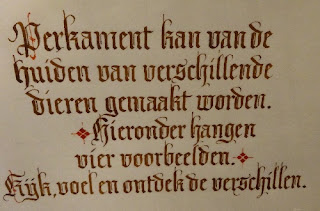 Perkament kan van de
huiden van verschillende
dieren gemaakt worden.
Hieronder hangen
vier voorbeelden.
Kijk, voel en ontdek de verschillen.